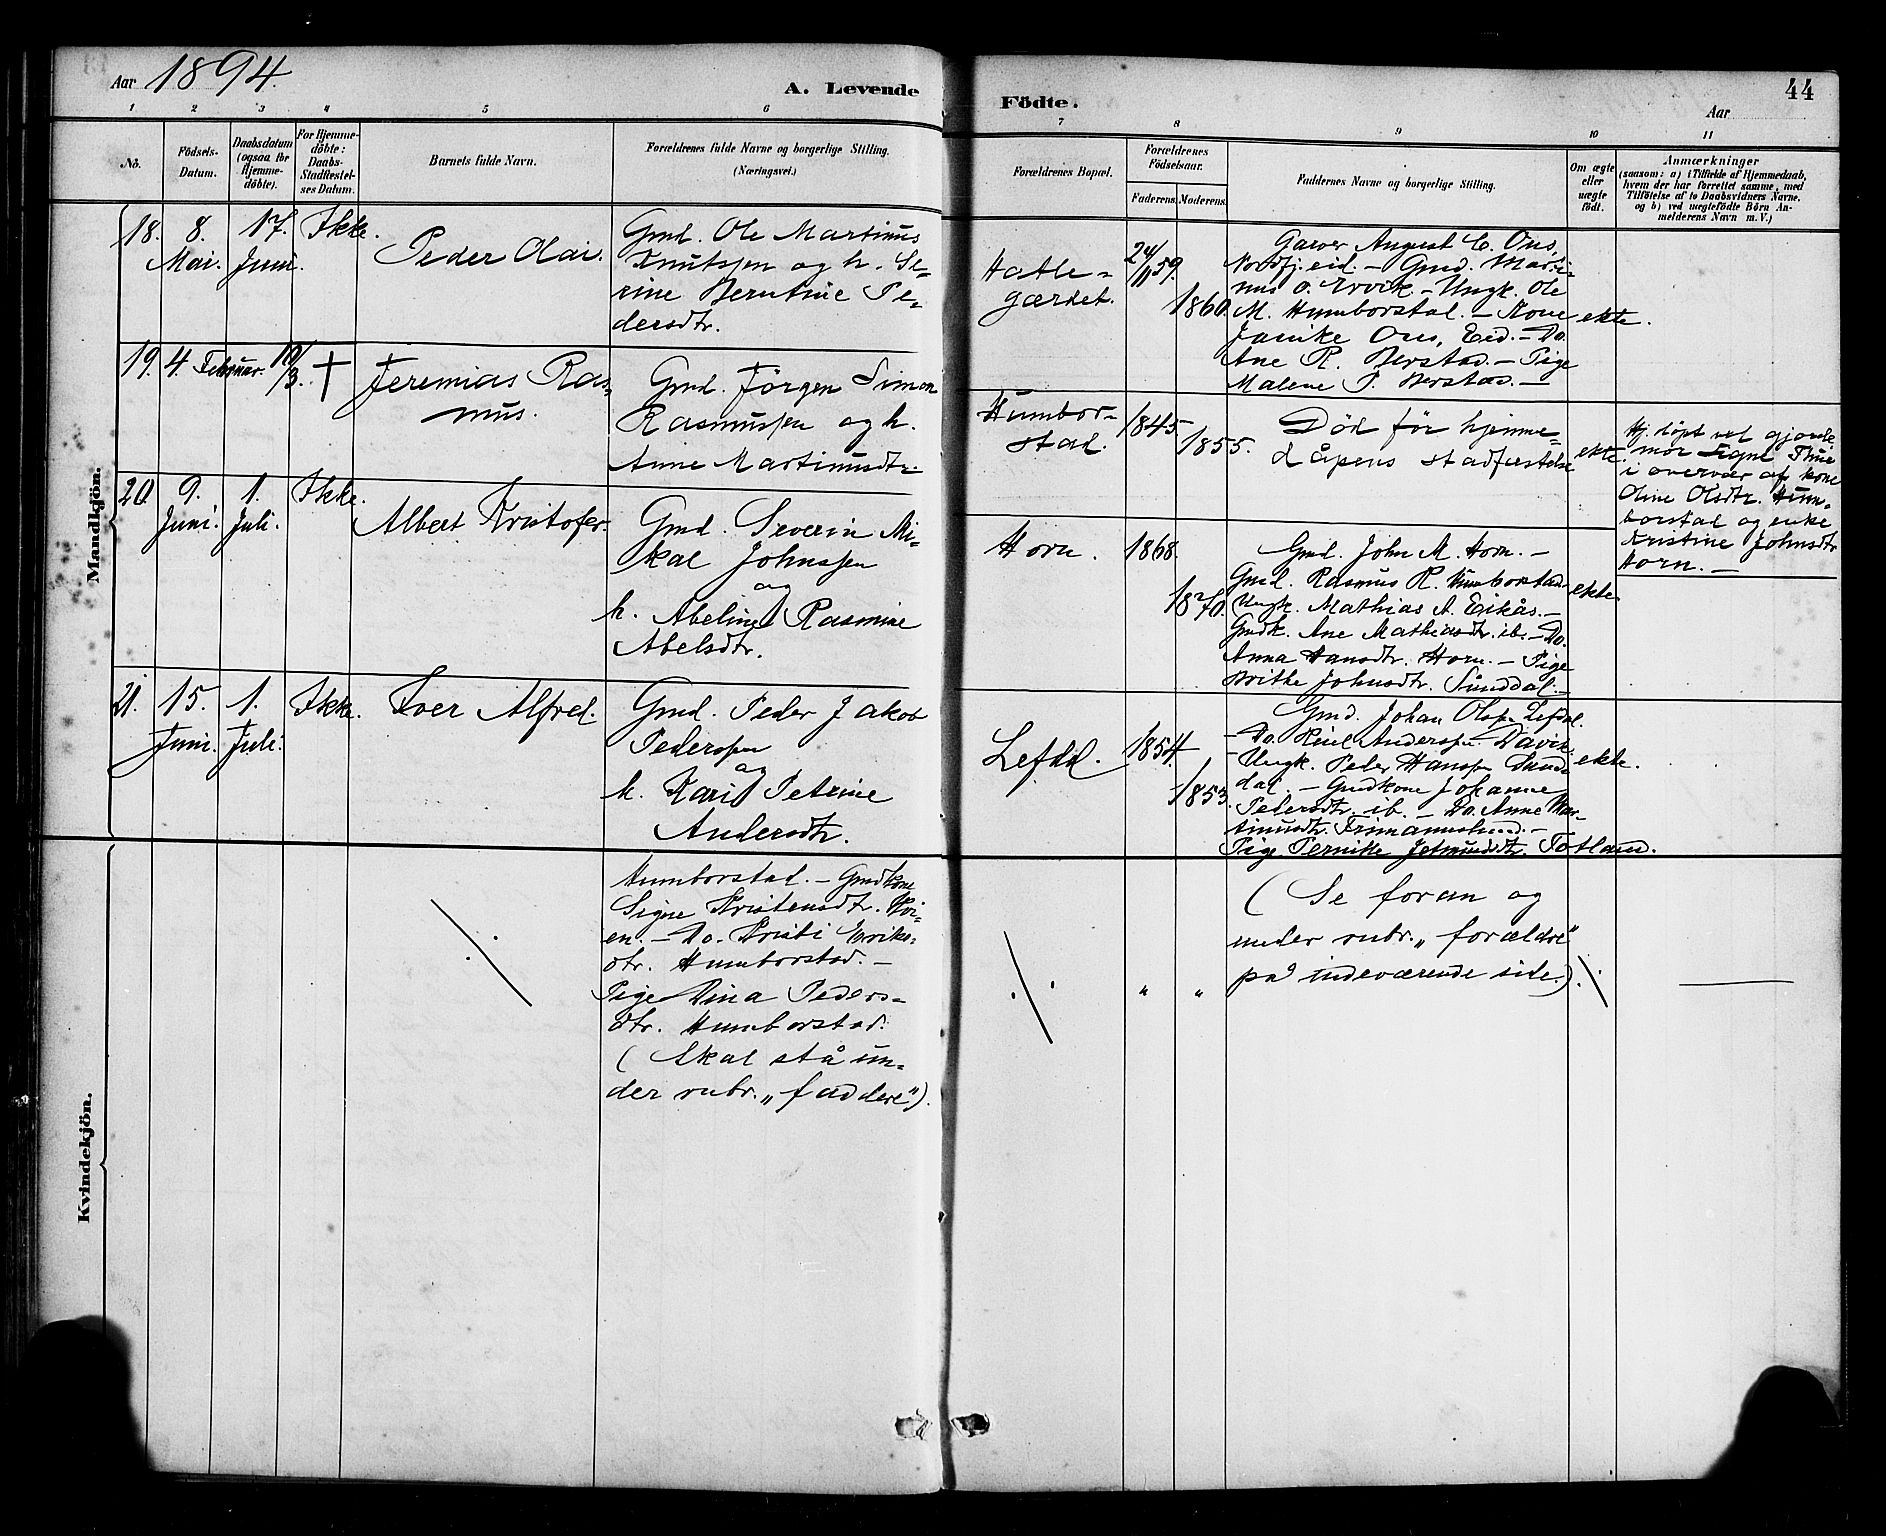 Aar 1894.
A. Levende
Födte.
Aar
44
1 2 3 4 5 6 7 8 9 10 11
No.
Födsels-
Datum.
Daabsdatum
(ogsaa for
Hjemme-
döbte).
For Hjemme-
döbte:
Daabs-
Stadfæstel-
ses Datum.
Barnets fulde Navn.
Forældrenes fulde Navne og borgerlige Stilling.
(Næringsvei.)
Forældrenes Bopæl.
Forældrenes
Födselsaar.
Faderens.
Moderens.
Faddernes Navne og borgerlige Stilling.
Om ægte
eller
uægte
födt.
Anmærkninger
(saasom: a) i Tilfælde af Hjemmedaab,
hvem der har forrettet samme, med
Tilföielse af to Daabsvidners Navne.
og b) ved uægtefödte Börn An-
melderens Navn m. V.)
Mandkjön.
18.
8.
Mai.
17.
Juni.
Ikke.
Peder Olai.
Gmd. Ole Martinus
Knutssen og h. Se-
rine Berntine Pe-
dersdtr.
Hatle-
gærdet.
24/11 59.
1860.
Garver August C. Ous,
Nordfj.eid. - Gmd. Marti-
nus O. Ervik. - Ungk. Ole
M. Humborstad. - Kone
Janike Ous, Eid. - Do.
Ane R. Berstad. - Pige
Malene P. Berstad. -
ekte.
19.
4. Februar.
10/3.
†
Jeremias Ras-
mus.
Gmd. Jörgen Simon
Rasmussen og h.
Anne Martinusdtr.
Humbor-
stad.
1845
1855.
Död för hjemme-
dåpens stadfæstelse
ekte.
Hj. döpt ved gjorde-
mor Signe Thue
i overvær af kone
Oline Olsdtr. Hum-
borstad og enke
Kristine Johnsdtr.
Horn. -
20.
9.
Juni.
1.
Juli.
Ikke.
Albert Kristofer.
Gmd. Severin Mi-
kal Johnssen
og
h. Abeline Rasmine
Abelsdtr.
Horn.
1868.
1870.
Gmd. John M. Horn. -
Gmd. Rasmus R. Humborstad. -
Ungk. Mathias A. Eikås. -
Gmdk. Ane Mathiasdtr. ib. - Do.
Anna Hansdtr. Horn. - Pige
Brithe Johnsdtr. Sunddal. -
ekte.
21.
15.
Juni.
1.
Juli.
Ikke.
Iver Alfred.
Gmd. Peder Jakob
Pederssen
og
h. Kari Petrine
Andersdtr.
Lefdal.
1854.
1853.
Gmd. Johan Olssen Lefdal.
- Do. Anderssen Davik.
- Ungk. Peder Hanssen Sund-
dal. - Gmdkone Johanne
Pedersdtr. ib. - Do. Anne Mar-
tinusdtr. -
Pige Pernille Totland.
ekte.
Kvindekjön.
Humborstad. - Gmdkone
Signe Kristensdtr.
en. - Do. Kristi Eriks-
dtr. Humborstad. -
Pige Dina Peders-
dtr. Humborstad.
(Skal stå un-
der rubr. „faddere").
" "
(Se foran og
under rubr. „forældre"
på indeværende side.)